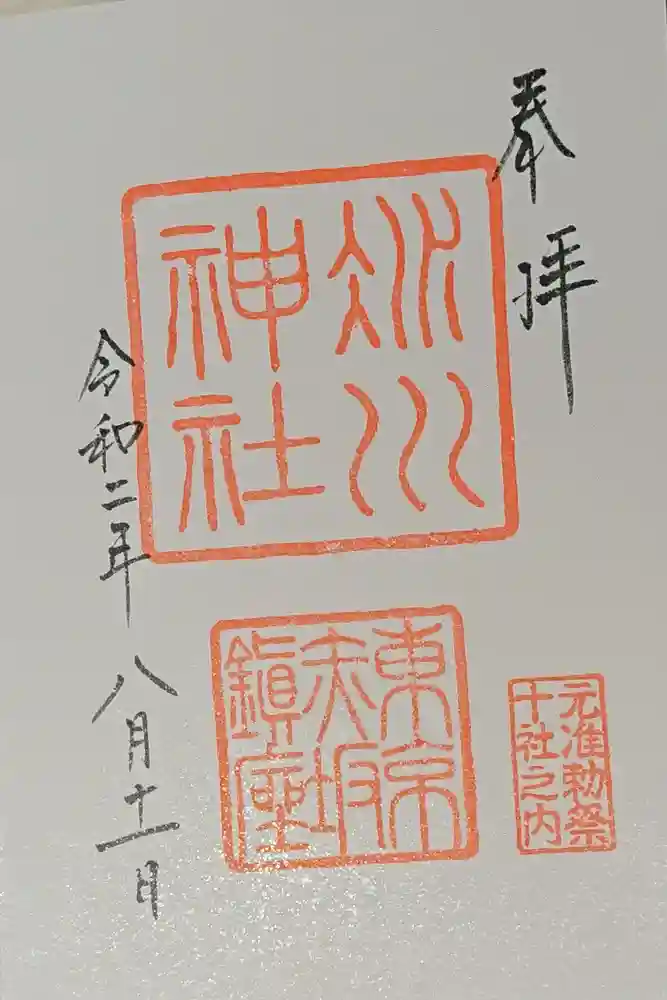 奉拝
氷川
神社
東京
赤坂
鎮座
元准勅祭
十社之内
令和二年八月十一日